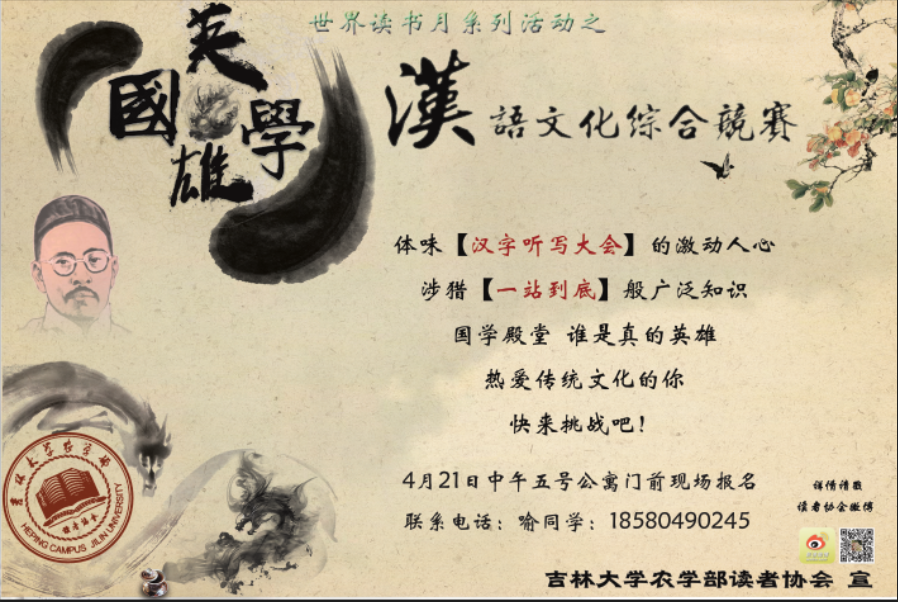 世界读书月系列活动之
國學英雄
漢語文化综合競賽
体味【汉字听写大会】的激动人心
涉猎【一站到底】般广泛知识
国学殿堂 谁是真的英雄
热爱传统文化的你
快来挑战吧!
4月21日中午五号公寓门前现场报名
联系电话:喻同学:18580490245
详情请戳
读者协会微博
吉林大学农学部读者协会 宣
吉林大学农学部
读者协会
HEPING CAMPUS JILIN UNIVERSITY